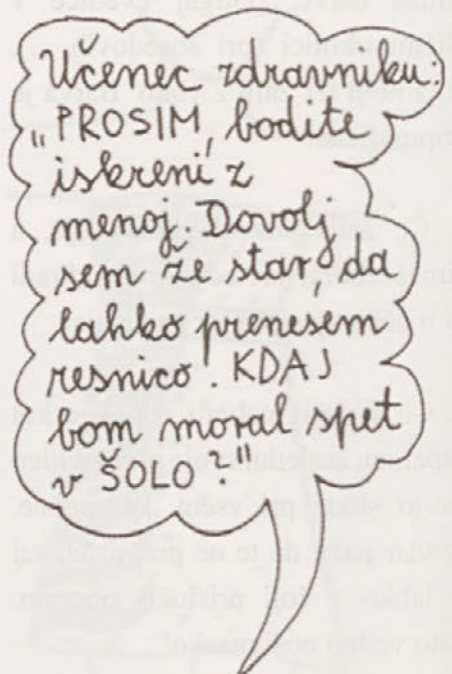 Učenec zdravniku:
"PROSIM, bodite
iskreni z
menoj. Dovolj
sem že star, da
lahko prenesem
resnico. KDAJ
bom moral spet
v ŠOLO?"